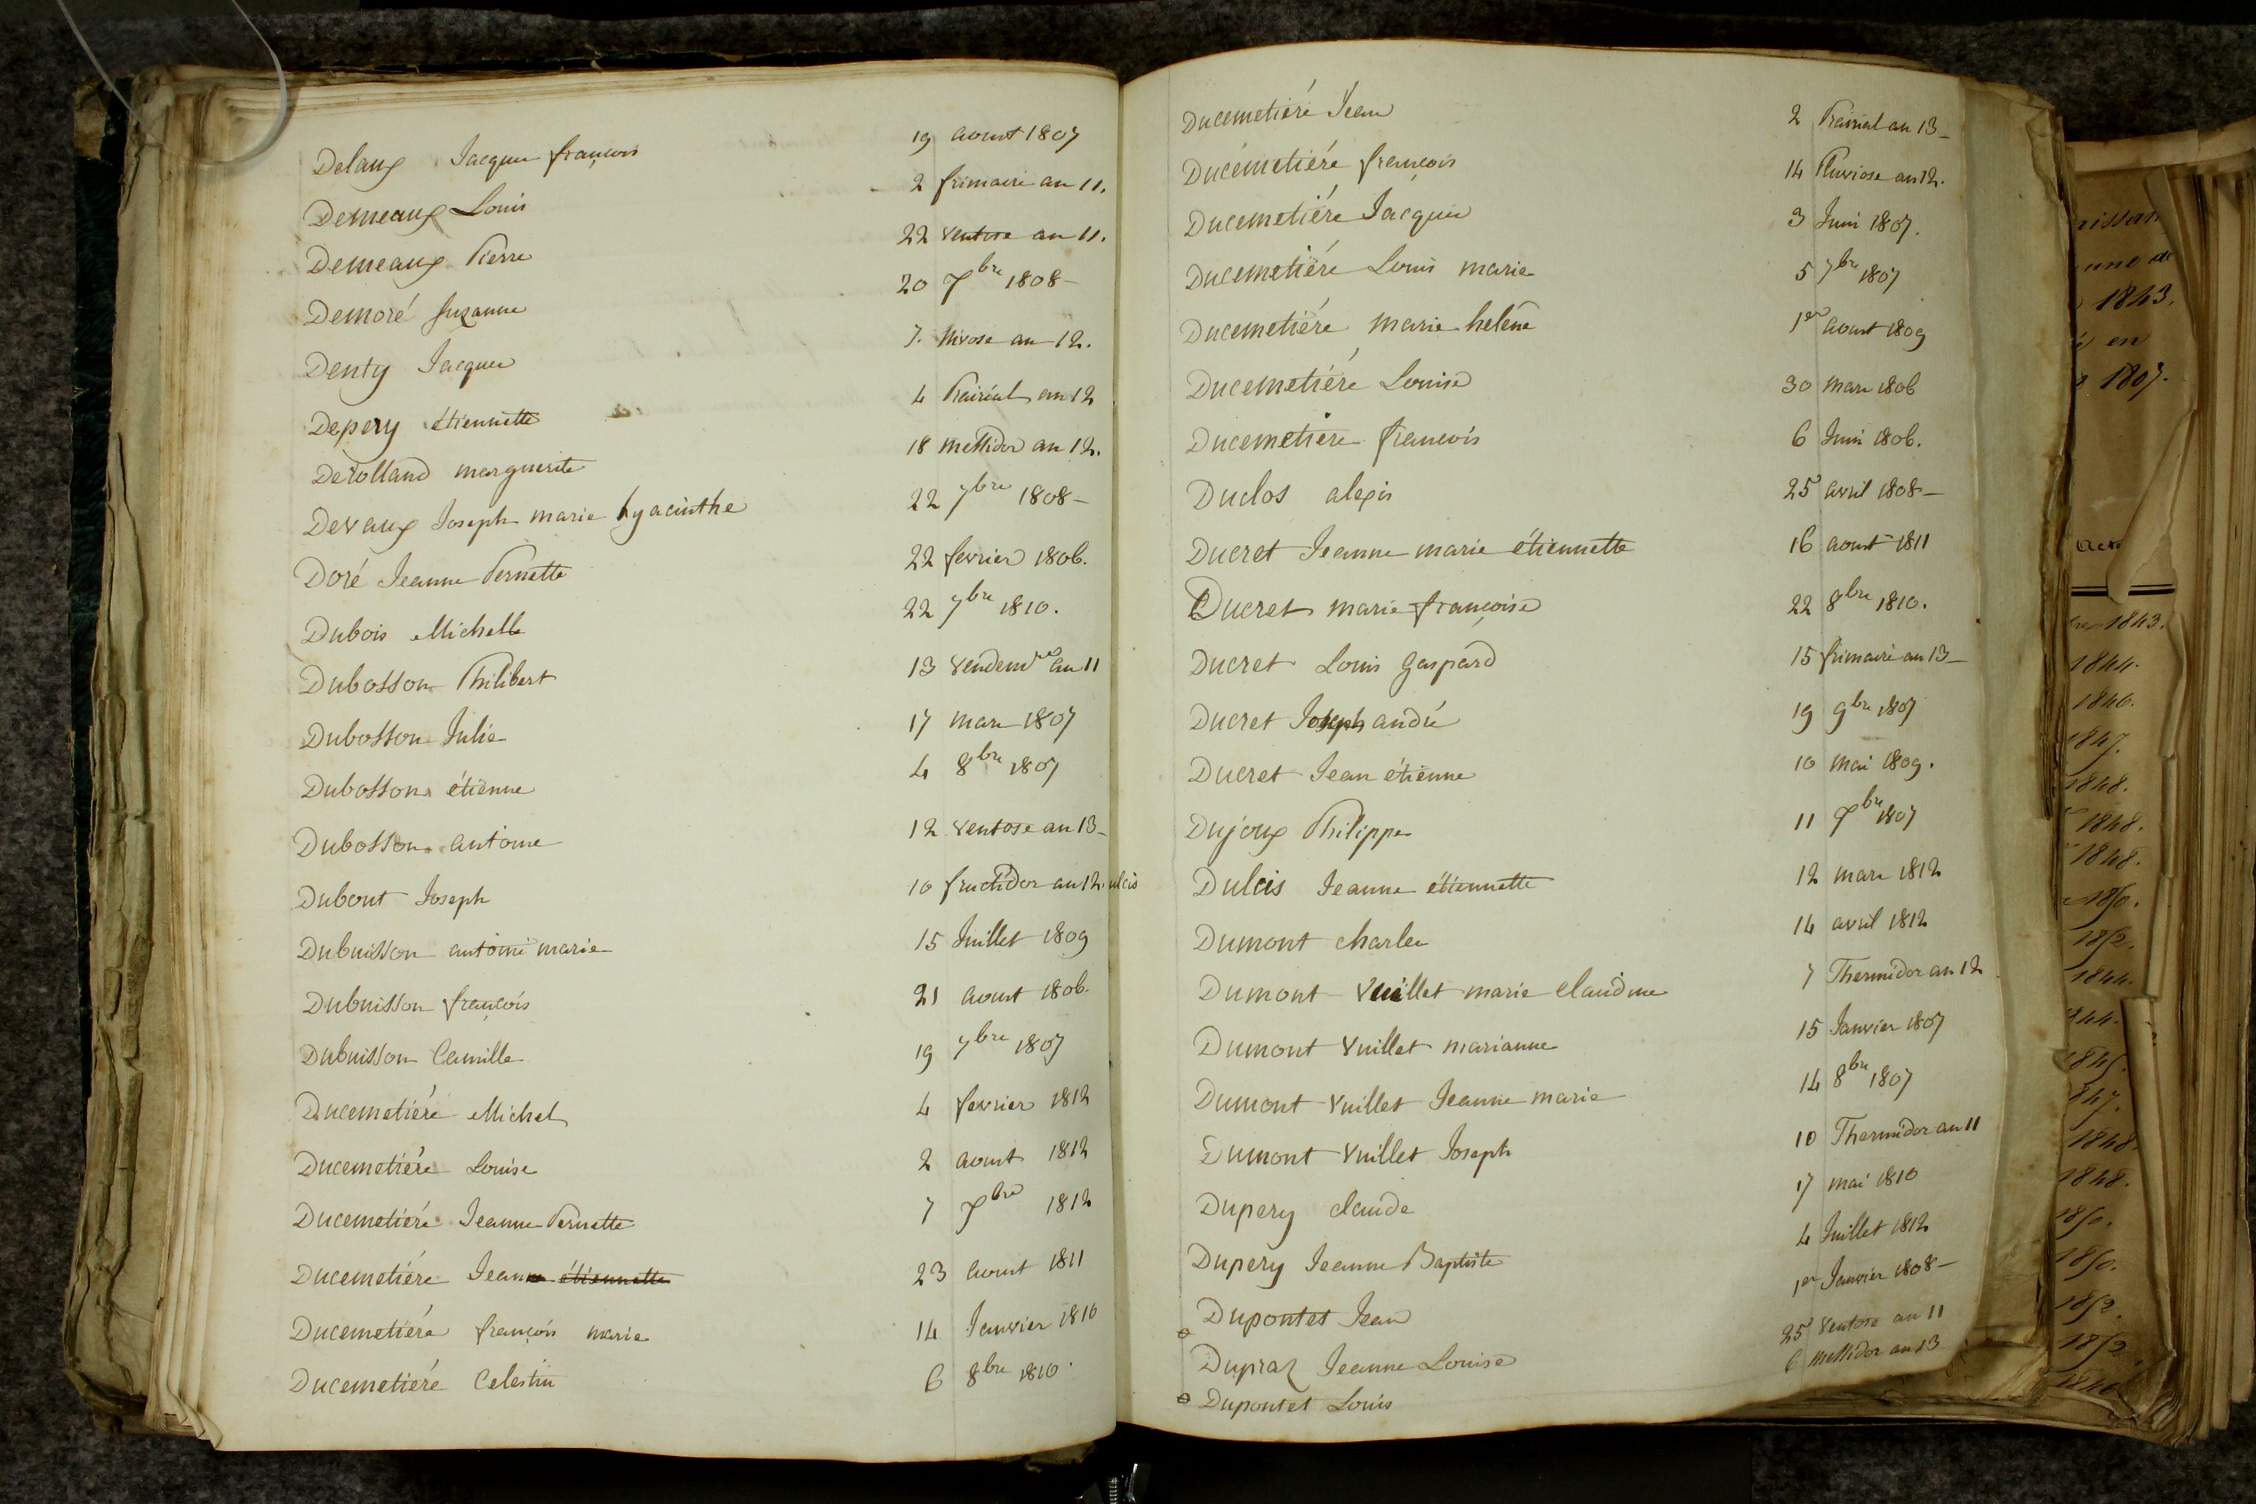 Delaux Jacques françois 19 aoust 1807
Demeaux Louis 2 frimaire an 11.
Demeaux Pierre 22 ventose an 11.
Demoré Suzanne 20 7bre 1808-
Denty Jacques 7. Nivose an 12.
Depery étiennette 4 Prairial an 12
Derolland marguerite 18 messidor an 12.
Devaux Joseph marie hyacinthe 22 7bre 1808-
Doré Jeanne Pernette 22 fevrier 1806.
Dubois Michelle 22 7bre 1810.
Dubosson Philibert 13 vendemre an 11
Dubosson Julie 17 mars 1807
Dubosson étienne 4 8bre 1807
Dubosson antoine 12 ventose an 13-
Dubout Joseph 10 fructidor an 12.
Dubuisson antoine marie 15 Juillet 1809
Dubuisson françois 21 aoust 1806.
Dubuisson Camille 19 7bre 1807
Ducemetiére Michel 4 fevrier 1812
Ducemetiére Louise 2 aoust 1812
Ducemetiére Jeanne Pernette 7 7bre 1812
Ducemetiére Jeanne étiennette 23 aoust 1811
Ducemetiére françois marie 14 Janvier 1810
Ducemetiére Celestin 6 8bre 1810.
Ducemetiéré Jean 2 Prairial an 13-
Ducémetiére françois 14 Pluviose an 12.
Ducemetiére Jacques 3 Juin 1807.
Ducemetiére Louis marie 5 7bre 1807
Ducemetiére marie helène 1er aoust 1809
Ducemetiére Louise 30 mars 1806
Ducemetiere françois 6 Juin 1806.
Duclos alexis 25 avril 1808-
Ducret Jeanne marie étiennette 16 aoust 1811
Ducret marie françoise 22 8bre 1810.
Ducret Louis gaspard 15 frimaire an 13-
Ducret Joseph andré 19 9bre 1807
Ducret Jean étienne 10 mai 1809.
Dujoux Philippe 11 7bre 1807
ulcis Dulcis Jeanne étiennette 12 mars 1812
Dumont charles 14 avril 1812
Dumont Vuillet marie claudine 7 Thermidor an 12
Dumont Vuillet marianne 15 Janvier 1807
Dumont Vuillet Jeanne marie 14 8bre 1807
Dumont Vuillet Joseph 10 Thermidor an 11
Dupery claude 17 mai 1810
Dupery Jeanne Baptiste 4 Juillet 1812
Dupontet Jean 1er Janvier 1808-
Dupraz Jeanne Louise 25 ventose an 11
Dupontet Louis 6 messidor an 13
1843.
en
1807.
1843.
1844.
1846.
1847.
1848.
1848.
1848.
1850.
1852.
1844.
1848.
1848.
1850.
1850.
1852.